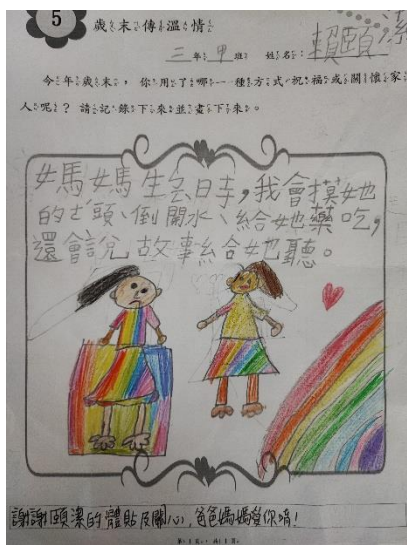 5
歲末傳溫情
三年甲班 姓名:賴頤潔
今年歲末,你用了哪一種方式祝福或關懷家
人呢?請記錄下來並畫下來。
媽媽生ㄊ時,我會摸她
的ㄜ頭、倒開水、給她藥吃,
還會說故事給她聽。
謝謝頤潔的體貼及關心,爸爸媽媽愛你唷!